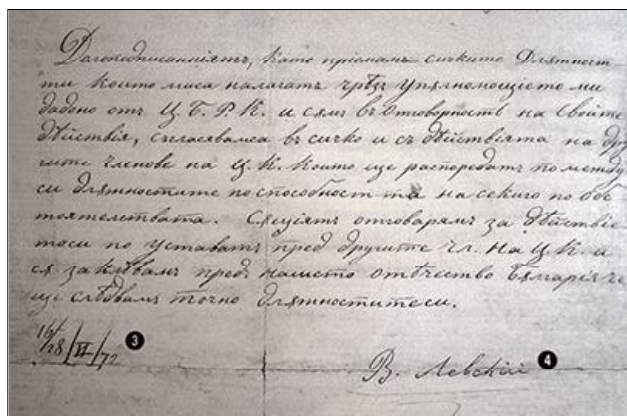 Долоподписанніятъ, като пріемамъ сичкито Длжност-
ти които миса налагатъ чрѣзъ упълномощіето ми
дадено отъ Ц. Б. Р. К. и съмъ въ отговорность на свойте
Дѣйствія, съгласявамса въ сичко и съ дѣйствіята на дру
гите членове на Ц. К. които ще распоредатъ по между
си длжностите по способностьта на секиго по обс
тоятелствата. Сящіятъ отговарямъ за дѣйствіе
тоси по уставатъ пред другите чл. на Ц. К. и
ся заклѣвамъ предъ нашето отѣчество Бѫлгарія че
ще слѣдвамъ точно длжноститеси.
16/28/VI/72 3
В. Левскій 4